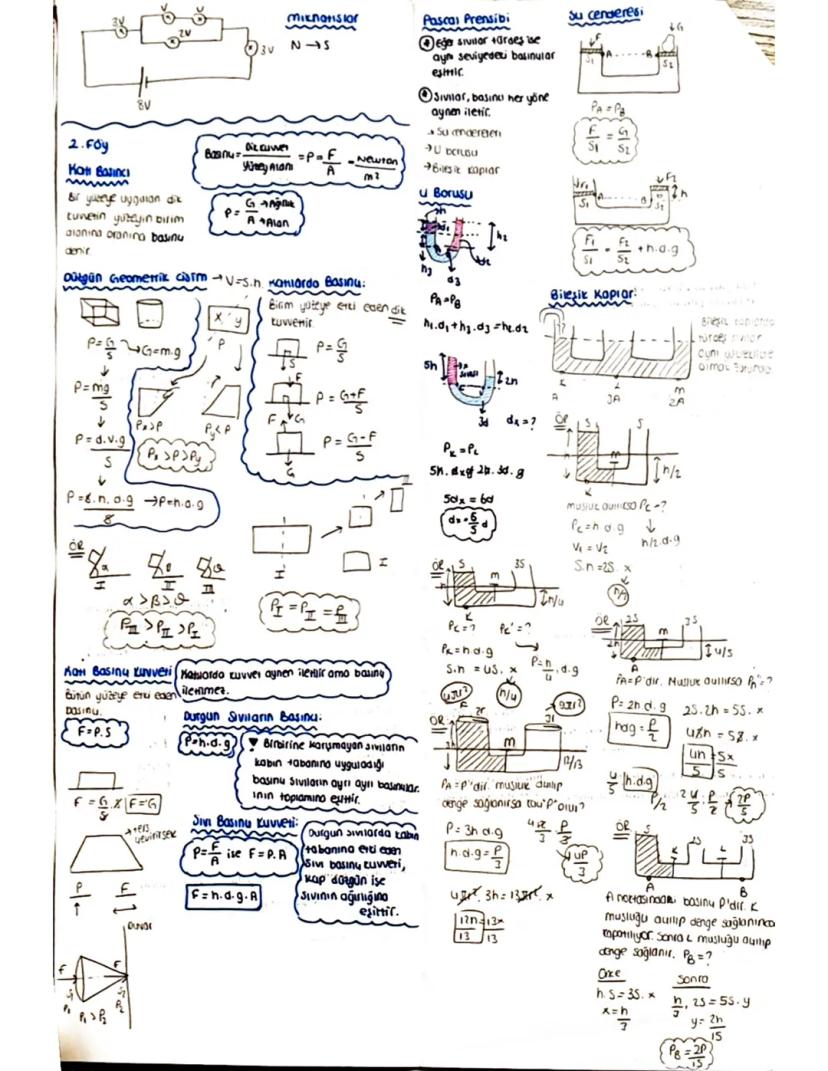 3V
V
V
2V
3V
8V
mıknatıslar
N → S
2. Föy
Katı Basıncı
Bir yüzeye uygulan dik
kuvvetin yüzeyin birim
alanına oranına basınç
denir.
Basınç = Dik kuvvet / Yüzey Alanı = P = F/A = Newton/m²
P = G → Ağırlık / A → Alan
Düzgün Geometrik Cisim → V=S.h
P = G/S → G=m.g
P = mg/S
P = d.v.g/S
P = S.h.d.g/S → P=h.d.g
X Y
P
Px>P
Py<P
Px > P > Py
Katılarda Basınç:
Birim yüzeye etki eden dik
kuvvettir.
P = G/S
P = G+F/S
P = G-F/S
ÖR
I II III
α > β > θ
PIII > PII > PI
I
II
III
PI = PII = PIII
Katı Basınç Kuvveti
Bütün yüzeye etki eden
basınç.
F = P.S
Katılarda kuvvet aynen iletilir ama basınç
iletilmez.
F = G/S . S
F = G
ters çevirirsek
P F
Duvar
F F
S1 S2
P1 P2
P1 > P2
Durgun Sıvıların Basıncı:
P=h.d.g
Birbirine karışmayan sıvıların
kabın tabanına uyguladığı
basınç sıvıların ayrı ayrı basınçlar
ının toplamına eşittir.
Sıvı Basınç Kuvveti:
P = F/A ise F = P.A
F = h.d.g.A
Durgun sıvılarda kabın
tabanına etki eden
sıvı basınç kuvveti,
kap düzgün ise
sıvının ağırlığına
eşittir.
Pascal Prensibi
Eğer sıvılar türdeş ise
aynı seviyedeki basınçlar
eşittir.
Sıvılar, basıncı her yöne
aynen iletir.
→ Su cenderesi
→ U borusu
→ Bileşik kaplar
U Borusu
h1 d1 h2 d2
h3 d3
PA = PB
h1.d1 + h3.d3 = h2.d2
5h
2h
3d
dx = ?
PK = PL
5h.dx.g 2h.3d.g
5dx = 6d
dx = 6/5 d
ÖR
S m 3S
h/4
K
PK = ? PK' = ?
PK = h.d.g
S.h = 4S.x
P = h/4 .d.g
h/4
ÖR
4πr²
9πr²
2r
m
PA = P'dir. musluk açılıp
denge sağlanırsa kaç P olur?
P = 3h d.g
h.d.g = P/3
4πr². 3h = 13πr². x
12h/13 = 13x/13
Su Cenderesi
F G
A B
S1 S2
PA = PB
F/S1 = G/S2
F1 F2
S1 S2 h
F1/S1 = F2/S2 + h.d.g
Bileşik Kaplar:
Bileşik kaplarda
türdeş sıvılar
aynı yükseklikte
olmak zorunda
K L M
A 3A 2A
ÖR
S S
h/2
musluk açılırsa PK = ?
PK = h.d.g
h/2.d.g
V1 = V2
S.h = 2S.x
ÖR
2S m 3S
2h
A
PA = P'dir. Musluk açılırsa PA' = ?
P = 2h.d.g
hdg = P/2
2S.2h = 5S.x
4Sh = 5S.x
4h/5 = 5x/5
4/5 h.d.g
P/2
4/5 . P/2
2P/5
ÖR
S K L 3S
A B
A noktasındaki basınç P'dir. K
musluğu açılıp denge sağlanınca
kapatılıyor. Sonra L musluğu açılıp
denge sağlanır. PB = ?
Önce
h.S = 3S.x
x = h/3
Sonra
h/3 . 2S = 5S.y
y = 2h/15
PB = 2P/15